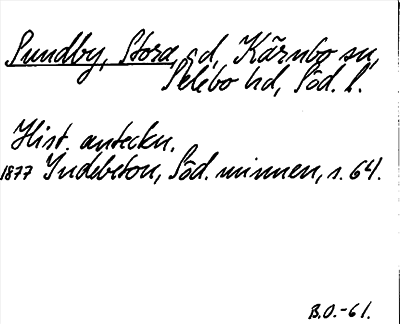 Sundby, Stora, gd, Kärnbo sn,
Selebo hd, Söd. l.
Hist. anteckn.
1877 Indebetou, Söd. minnen, s. 64.
B.O.-61.